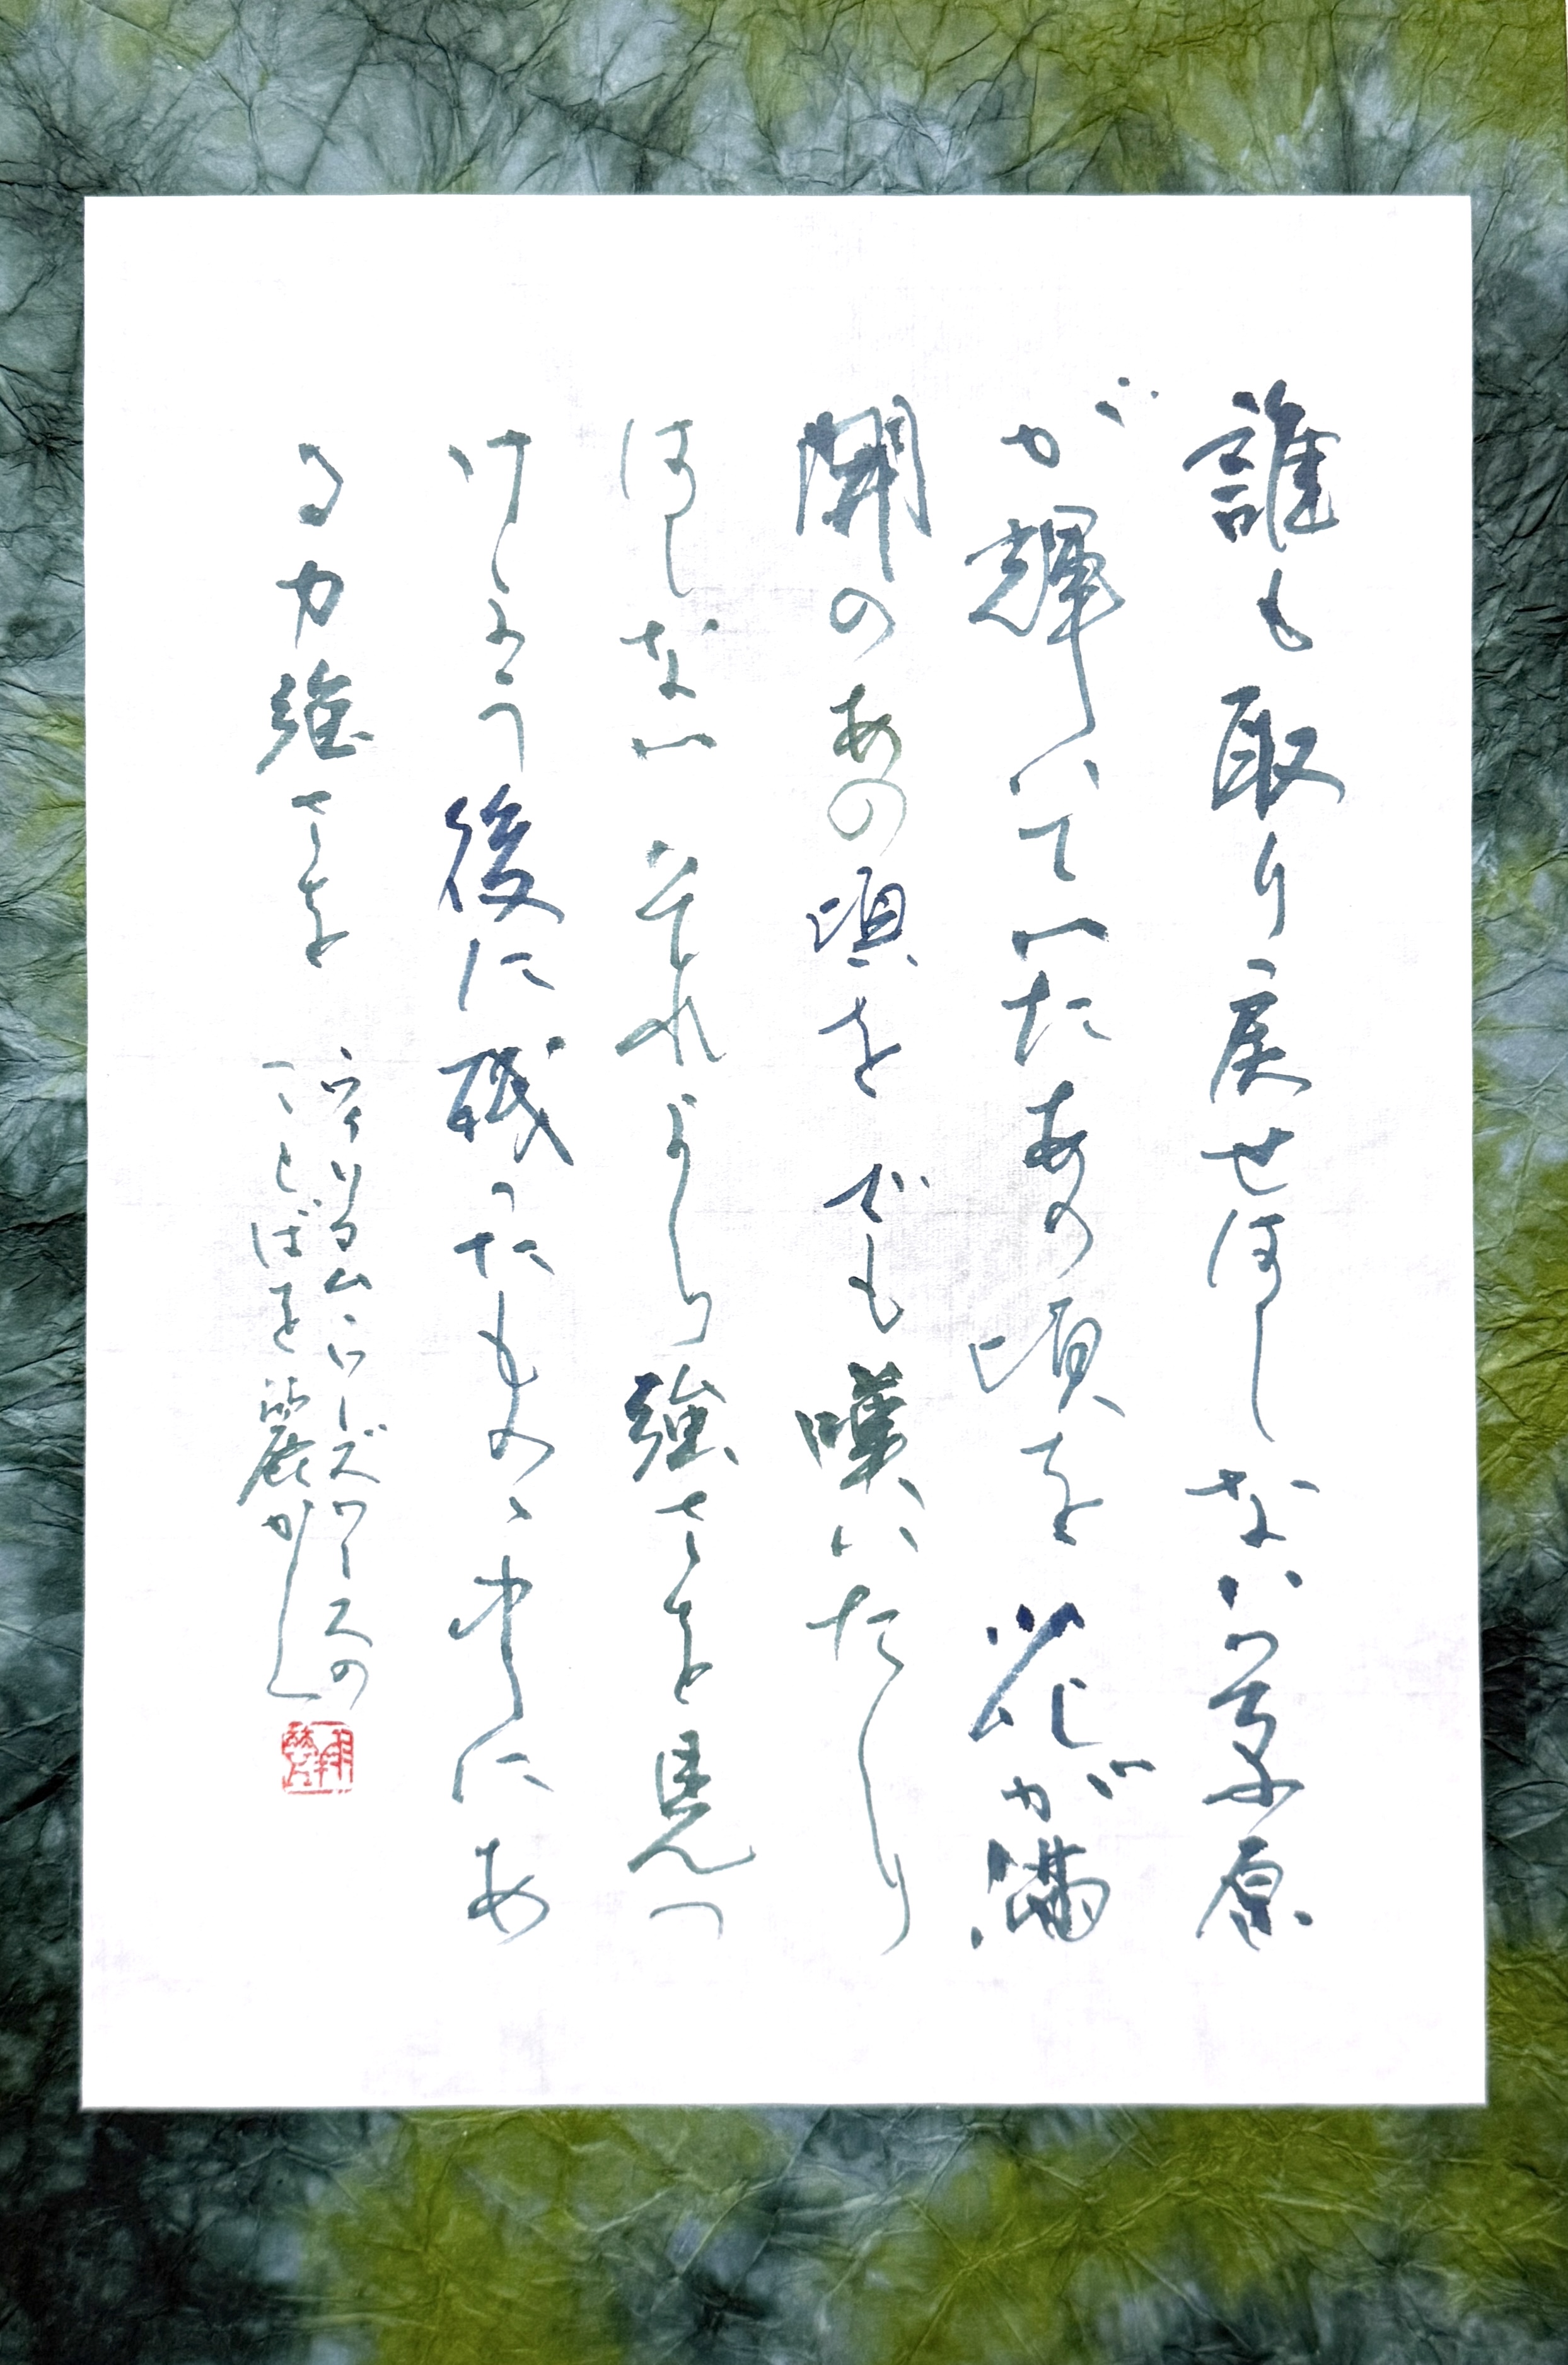 誰も取り戻せはしない草原
が輝いていたあの頃を花が満
開のあの頃をでも嘆いたり
はしないそれより強さを見つ
けよう後に残ったものゝ中にあ
る力強さを
ウィリアム・ワーズワースの
ことばを 麗かし